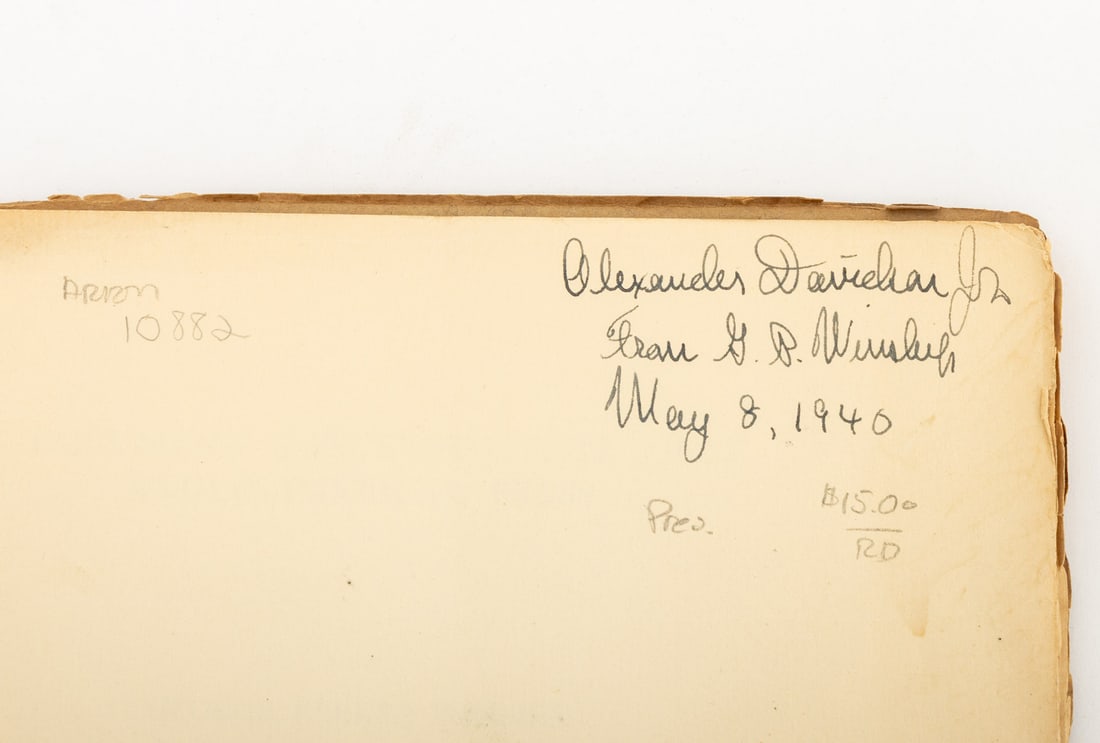 Arion
10882
Alexander Davidson Jr
from G. P. Winship
May 8, 1940
Pres.
$15.00
RD